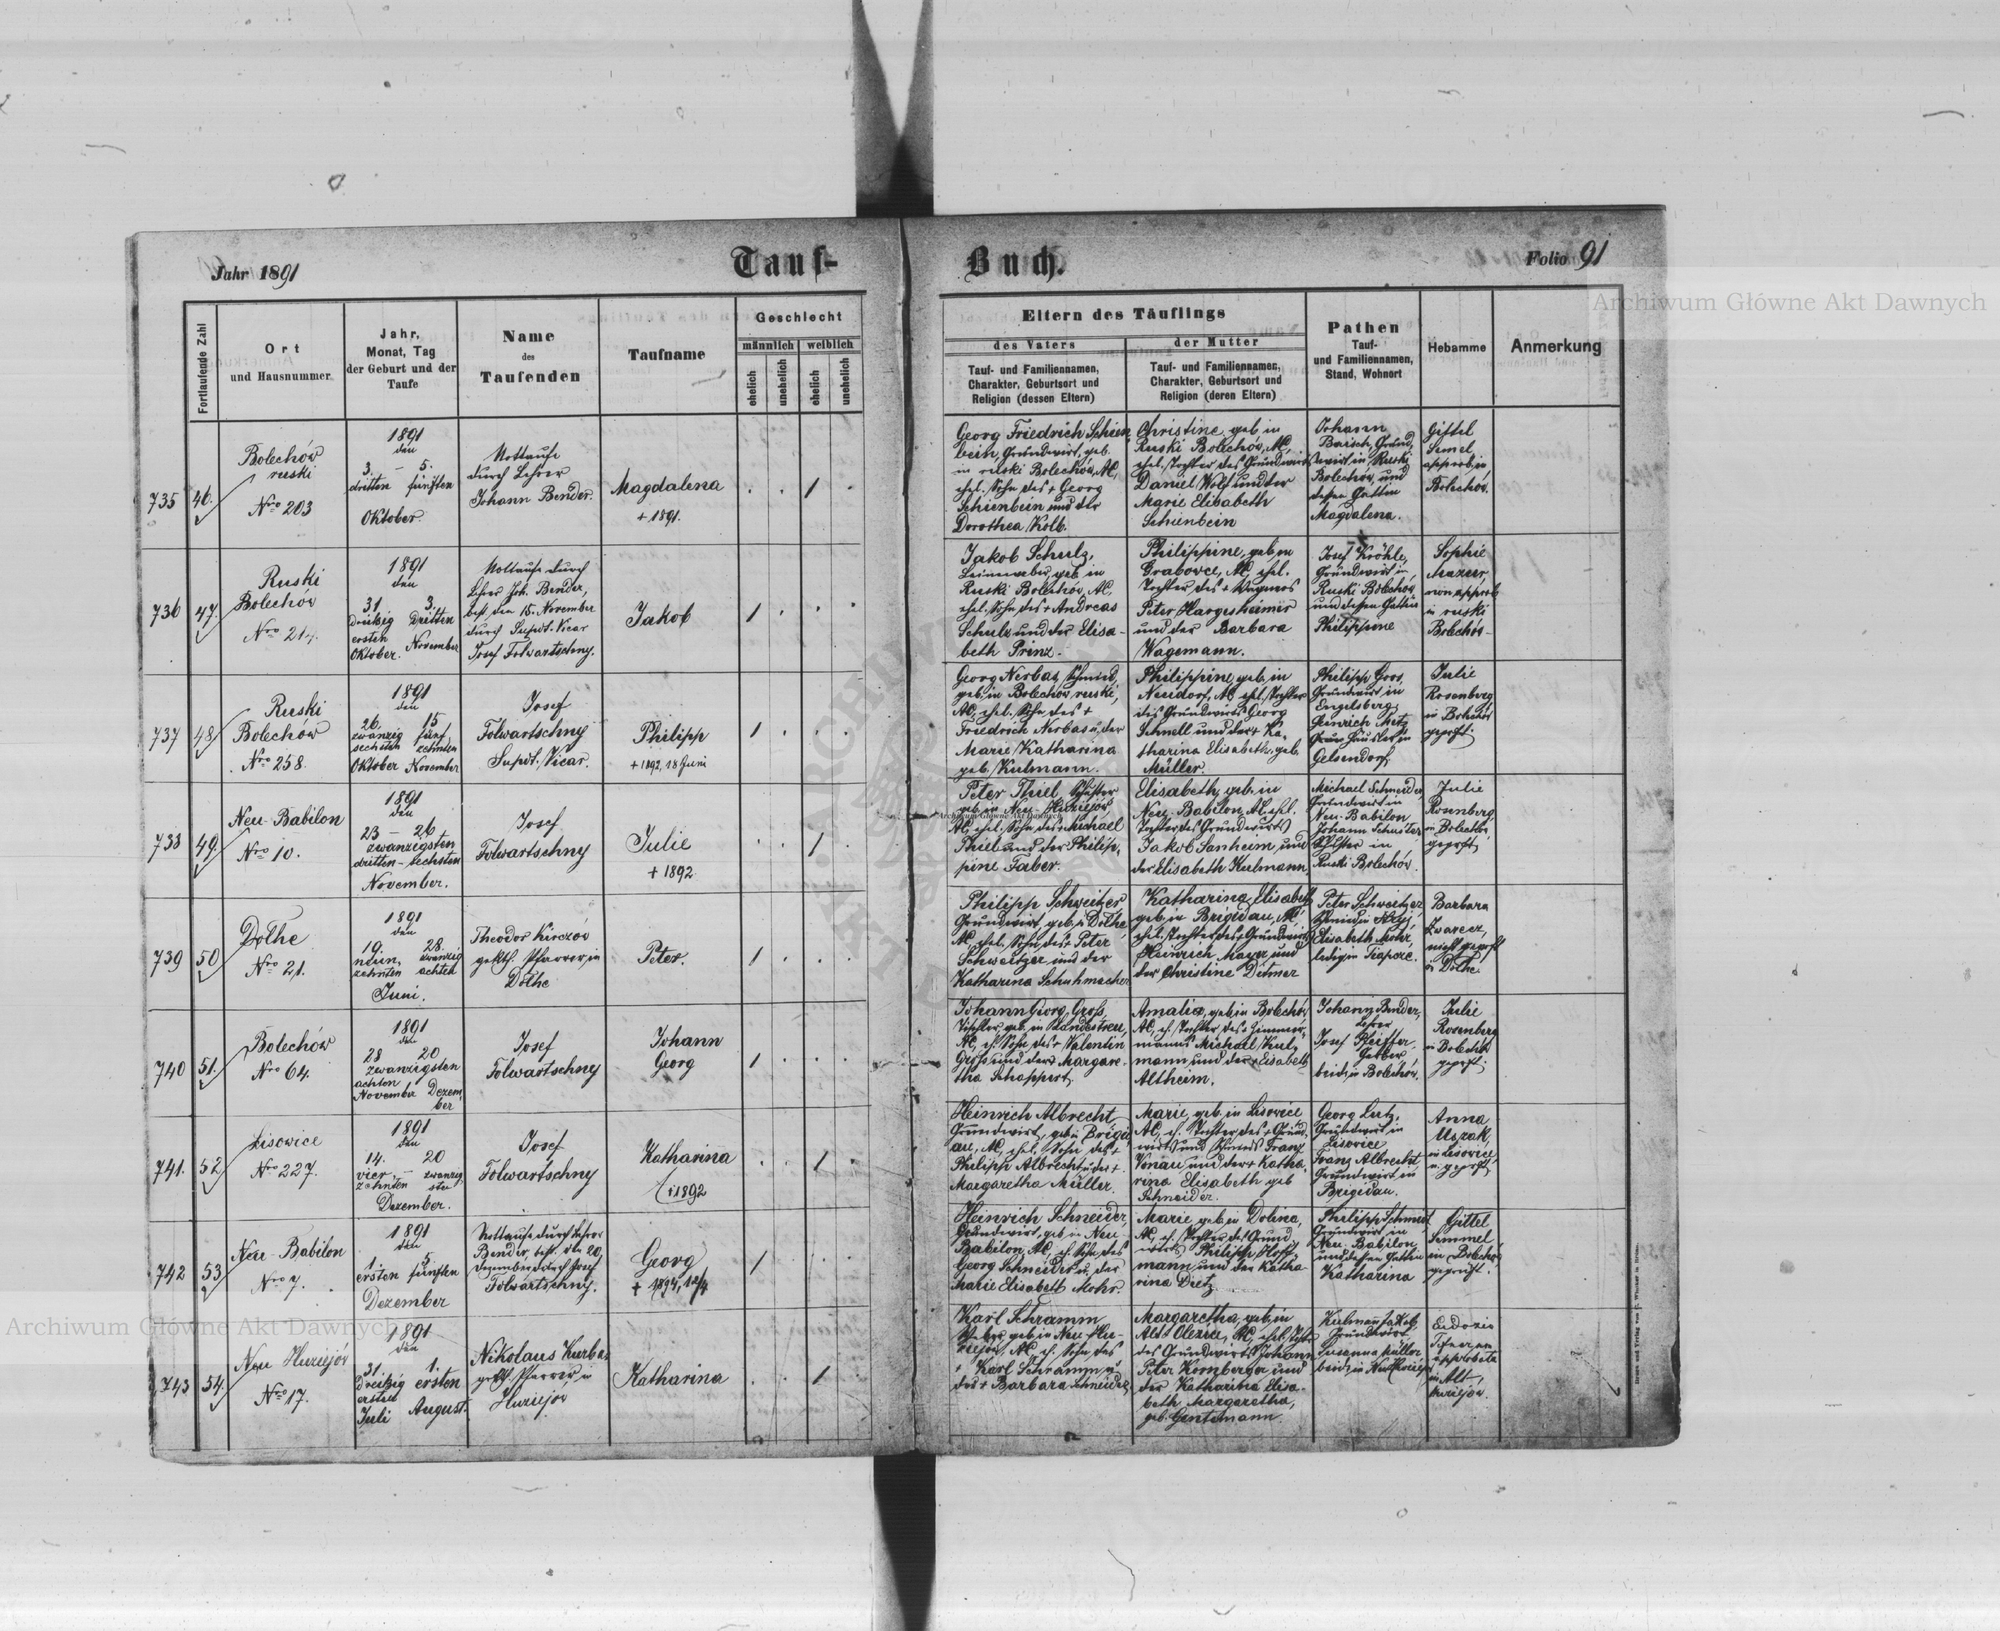 Jahr 1891
Tauf-
Buch.
Folio 91
Archiwum Główne Akt Dawnych
Fortlaufende Zahl
Ort
und Hausnummer
Jahr,
Monat, Tag
der Geburt und der
Taufe
Name
des
Taufenden
Taufname
Geschlecht
männlich
weiblich
ehelich
unehelich
ehelich
unehelich
Eltern des Täuflings
des Vaters
der Mutter
Tauf- und Familiennamen,
Charakter, Geburtsort und
Religion (dessen Eltern)
Tauf- und Familiennamen,
Charakter, Geburtsort und
Religion (deren Eltern)
Pathen
Tauf-
und Familiennamen,
Stand, Wohnort
Hebamme
Anmerkung
735
46.
Bolechów
ruski
Nro 203
1891
den
3. – 5.
dritten fünften
Oktober.
Nottaufe
durch Lehrer
Johann Bender.
Magdalena
+ 1891.
Georg Friedrich Schien
bein, Grundwirt, geb.
in ruski Bolechów, AC,
ehel. Sohn des + Georg
Schienbein und der
Dorothea Kolb.
Christine, geb. in
Ruski Bolechów, AC,
ehel. Tochter des Grundwirts
Daniel Wolf und der
Marie Elisabeth
Schienbein
Johann
Baisch, Grund,
wirt in Ruski
Bolechów, und
dessen Gattin
Magdalena.
Gittel
Semel
approb. in
Bolechów.
736
47.
Ruski
Bolechów
Nro 214.
1891
den
31. 3.
dreißig Dritten
ersten
Oktober. November
Nottaufe durch
Lehrer Joh. Bender,
best. den 15. November
durch Supdt. Vicar
Josef Folwartschny.
Jakob
Jakob Schulz,
Leineweber, geb. in
Ruski Bolechów, AC,
ehel. Sohn des + Andreas
Schulz und der Elisa-
beth Prinz.
Philippine, geb. in
Grabowce, AC, ehel.
Tochter des + Wagners
Peter Hargesheimer
und der Barbara
Wagemann.
Josef Kröhle,
Grundwirt in
Ruski Bolechów,
und dessen Gattin
Philippine
Sophie
Mazur
non approb.
in ruski
Bolechów
737
48.
Ruski
Bolechów
Nro 258.
1891
den
26. 15
zwanzig fünf,
sechsten zehnten
Oktober November
Josef
Folwartschny
Supdt. Vicar.
Philipp
+ 1892, 18 Juni
Georg Nerbas, Schmied,
geb. in Bolechów ruski,
AC, ehel. Sohn des +
Friedrich Nerbas u. der
Marie Katharina
geb. Kulmann.
Philippine, geb. in
Neudorf, AC, ehel. Tochter
des Grundwirts Georg
Schnell und der + Ka-
tharina Elisabeth, geb.
Müller.
Philipp Goos,
Grundwirt in
Engelsberg,
Heinrich Metz,
Häusler in
Gelsendorf.
Julie
Rosenberg,
in Bolechów
geprft.
738
49.
Neu-Babilon
Nro 10.
1891
den
23 – 26
zwanzigsten
dritten – sechsten
November.
Josef
Folwartschny
Julie
+ 1892
Peter Thiel, Schuster
geb. in Neu-Huziejów
AC, ehel. Sohn des + Michael
Thiel und der Philip,
pine Faber.
Archiwum Główne Akt Dawnych
Elisabeth, geb. in
Neu-Babilon, AC, ehel.
Tochter des Grundwirts
Jakob Sanheim, und
der Elisabeth Kulmann.
Michael Schneider,
Grundwirt in
Neu-Babilon
Johann Schuster,
in
Ruski Bolechów.
Julie
Rosenberg,
in Bolechów,
geprft.
739
50
Dołhe
Nro 21.
1891
den
19. 28.
neun, zwanzig
zehnten achten
Juni.
Theodor Kirczów
gr. kth. Pfarrer, in
Dołhe
Peter.
Philipp Schweitzer
Grundwirt, geb. in Dołhe,
AC, ehel. Sohn des + Peter
Schweitzer und der
Katharina Schuhmacher
Katharina Elisabeth
geb. in Brigidau, AC,
ehel. Tochter des + Grundwirts
Heinrich Mayer und
der Christine Ditmer
Peter Schweitzer,
Elisabeth Mohr,
ledig in
Barbara
Zwarecz,
nicht geprft
in Dołhe.
740
51.
Bolechów
Nro 64.
1891
den
28 20
zwanzigsten
achten
November Dezem,
ber
Josef
Folwartschny
Johann
Georg
Johann Georg Gross,
Tischler, geb. in Landestreu,
AC, eh. Sohn des + Valentin
Gross und der + Margare-
tha Schappert.
Amalie, geb. in Bolechów
AC, eh. Tochter des Zimmer-
manns Michael Kul-
mann, und der + Elisabeth
Altheim.
Johann Bender,
Lehrer
Josef Pfeiffer,
Gerber
beide in Bolechów.
Julie
Rosenberg
in Bolechów
geprft.
741.
52
Lisowice
Nro 227.
1891
den
14. 20
vier, – zwanzig
zehnten – sten
Dezember.
Josef
Folwartschny
Katharina
+ 1892
Heinrich Albrecht
Grundwirt, geb. in Brigid
au, AC, ehel. Sohn des +
Philipp Albrecht u. der +
Margaretha Müller.
Marie, geb. in Lisowice
AC, eh. Tochter des + Grund,
wirts und Franz
Vonau und der + Katha,
rina Elisabeth geb
Schneider.
Georg Lutz,
Grundwirt in
Lisowice
Franz Albrecht
Grundwirt in
Brigidau.
Anna
Uszak,
in Lisowice,
n. geprft.
742
53
Neu-Babilon
Nro 7.
1891
den
1. 5.
ersten fünften
Dezember
Nottaufe durch Lehrer
Bender, best. den 20,
Dezember durch Josef
Folwartschny.
Georg
+ 1894, 12/4
Heinrich Schneider,
Grundwirt, geb. in Neu-
Babilon, AC, eh. Sohn des
Georg Schneider u. der
Marie Elisabeth Mohr.
Marie, geb. in Dolina,
AC, eh. Tochter des Grund
wirts Philipp Hoff-
mann und der Katha-
rina Dietz
Philipp Schmidt
Grundwirt in
Neu-Babilon,
und dessen Gattin
Katharina
Gittel
Semmel
in Bolechów
geprüft.
743
54.
Neu Huziejów
Nro 17.
1891
den
31. 1.
Dreißig ersten
ersten
Juli August.
Nikolaus Kurba,
gr. kth. Pfarrer in
Huziejów
Katharina
Karl Schramm
Weber, geb. in Neu-Hu-
ziejów, AC, eh. Sohn des
+ Karl Schramm u.
der + Barbara Schneider,
Margaretha, geb. in
Alt Olexie, AC, ehel. Tocht.
des Grundwirts Johann
Peter Kirnberger und
der Katharina Elisa-
beth Margaretha,
geb. Gentemann.
Kulmann Jakob,
Grundwirt,
Susanna Müller
beide in Neu Huziejów
Eudozia
approbata
in Alt,
Huziejów.
Archiwum Główne Akt Dawnych